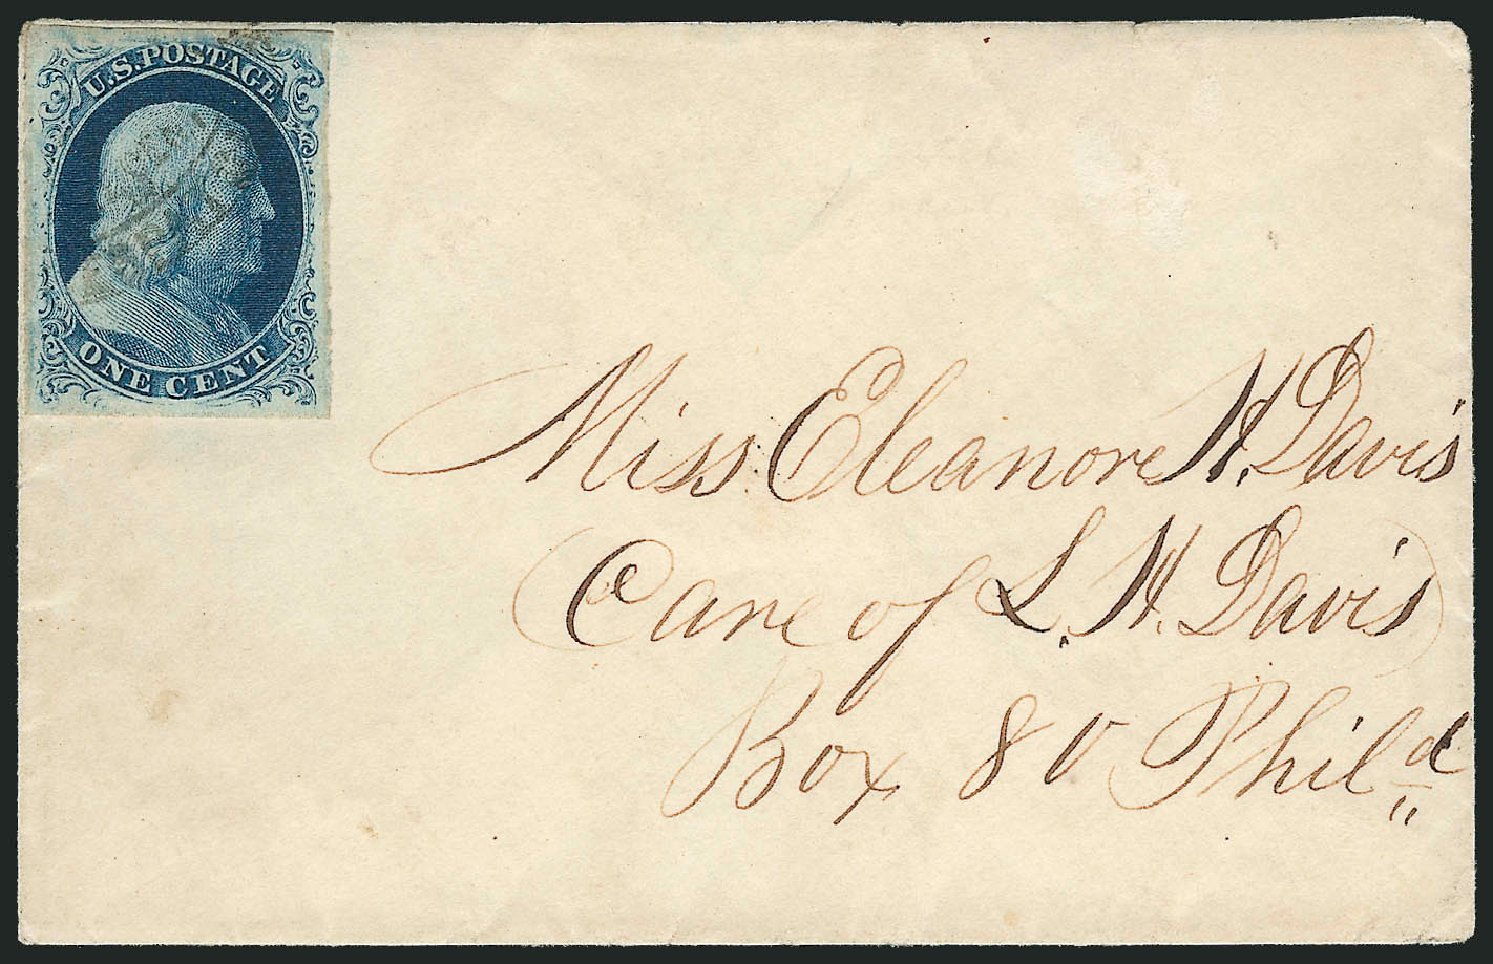 U.S. POSTAGE
ONE CENT
Miss Eleanore H. Davis
Care of L. H. Davis
Box 80 Philᵃ